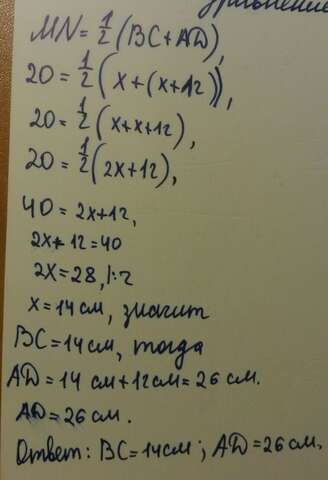 MN = 1/2 (BC + AD),
20 = 1/2 (x + (x + 12)),
20 = 1/2 (x + x + 12),
20 = 1/2 (2x + 12),
40 = 2x + 12,
2x + 12 = 40
2x = 28, |:2
x = 14 см, значит
BC = 14 см, тогда
AD = 14 см + 12 см = 26 см.
AD = 26 см.
Ответ: BC = 14 см; AD = 26 см.